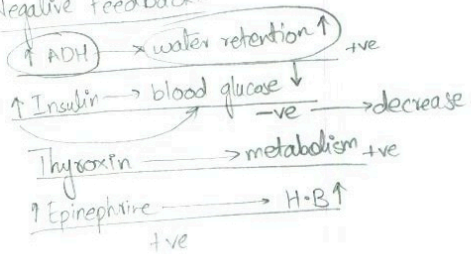 Negative Feedback
↑ ADH → water retention ↑ +ve
↑ Insulin → blood glucose ↓
-ve → decrease
Thyroxin → metabolism +ve
↑ Epinephrine → H·B ↑
+ve